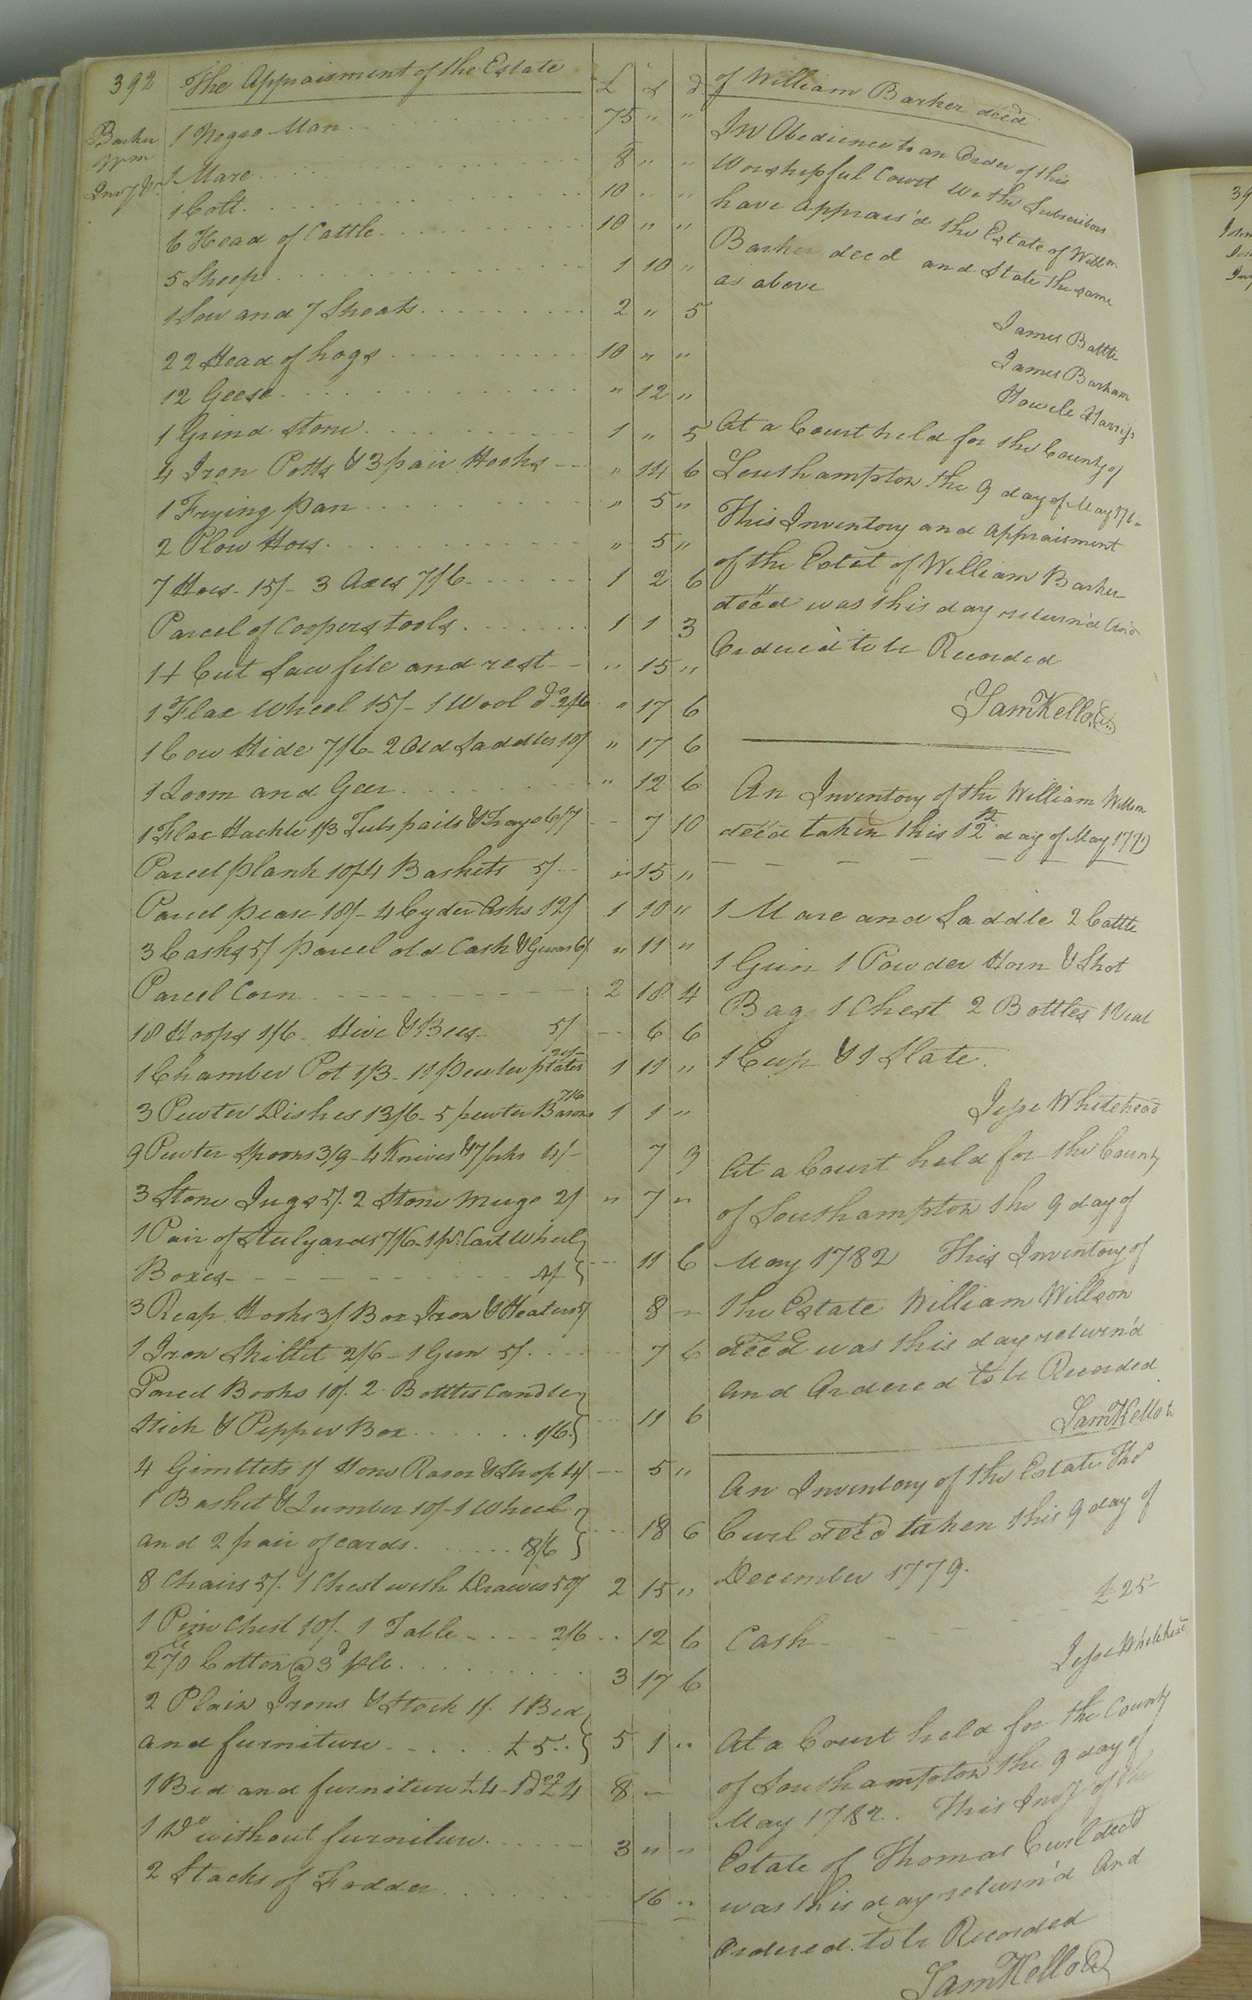 392 The Appraisment of the Estate £ s d
Barker
Wm
Invy &c
1 Negro Man 75 " "
1 Mare 8 " "
1 Colt 10 " "
6 Head of Cattle 10 " "
5 Sheep 1 10 "
1 Sow and 7 Shoats 2 " 5
22 Head of hogs 10 " "
12 Geese " 12 "
1 Grind Stone 1 " 5
4 Iron Potts & 3 pair Hooks " 14 6
1 Frying pan " 5 "
2 Plow Hoes " 5 "
7 Hoes 15/- 3 Axes 7/6 1 2 6
Parcel of Coopers tools 1 1 3
1 + Cut Saw file and rest " 15 "
1 Flax Wheel 15/- 1 Wool Do 2/6 " 17 6
1 Cow Hide 7/6 2 Old Saddles 10/ " 17 6
1 Loom and Geer " 12 6
1 Flax Hackle 1/3 Tubs pails & Trays 6/7 7 10
Parcel plank 10/ 4 Baskets 5/ " 15 "
Parcel pease 18/- 4 Cyder Casks 12/ 1 10 "
3 Casks 5/ parcel old Cask & Gums 6/ " 11 "
Parcel Corn 2 18 4
18 Hoops 1/6 Hive & Bees 5/ 6 6
1 Chamber Pot 1/3 11 pewter plates 20/ 1 11 "
3 Pewter Dishes 13/6 5 pewter Basons 7/6 1 1 "
9 Pewter Spoons 3/9 4 Knives & 7 forks 4/- 7 9
3 Stone Jugs 5/. 2 Stone Mugs 2/ " 7 "
1 Pair of Steelyards 7/6 1 pr. Cart Wheel
Boxes 4/ 11 6
3 Reap Hooks 3/ Box Iron & Heaters 5/ 8 "
1 Iron Skillet 2/6 1 Gun 5/. 7 6
Parcel Books 10/. 2 Bottles Candle
Stick & Pepper Box 1/6 11 6
4 Gimblets 1/ Hone Rasor & Strop 4/ 5 "
1 Basket & Lumber 10/- 1 Wheel
and 2 pair of cards 8/6 18 6
8 Chairs 5/. 1 Chest with Drawes 50/ 2 15 "
1 Pine Chest 10/. 1 Table 2/6 12 6
270 Cotton @ 3d 3 17 6
2 Plain Irons & Stock 1/. 1 Bed
and furniture £5.. 5 1 "
1 Bed and furniture £4 1 Do £4 8 "
1 Do without furniture 3 " "
2 Stacks of Fodder 16 "
of William Barker decd
In Obedience to an Order of this
Worshipful Court We the Subscribers
have apprais'd the Estate of Willm
Barker decd and State the same
as above
James Battle
James Barham
Howell Harriss
At a Court held for the County of
Southampton the 9 day of May
This Inventory and appraisment
of the Estat of William Barker
decd was this day return'd And
Ordered to be Recorded
Sam Kello Ck
An Inventory of the William Willson
decd taken this 12 day of May 177
1 Mare and Saddle 2 Cattle
1 Gun 1 Powder Horn & Shot
Bag 1 Chest 2 Bottles 1 Vial
1 Cup & 1 Slate.
Jesse Whitehead
At a Court held for the County
of Southampton the 9 day of
May 1782 This Inventory of
the Estate William Willson
decd was this day return'd
And Ordered to be Recorded
Sam Kello Ck
An Inventory of the Estate Thos
Curl decd taken this 9 day of
December 1779.
Cash £ 25
Jesse Whitehead
At a Court held for the County
of Southampton the 9 day of
May 1782. This Invy of the
Estate of Thomas Curl decd
was this day return'd And
Ordered to be Recorded
Sam Kello Ck
39
John